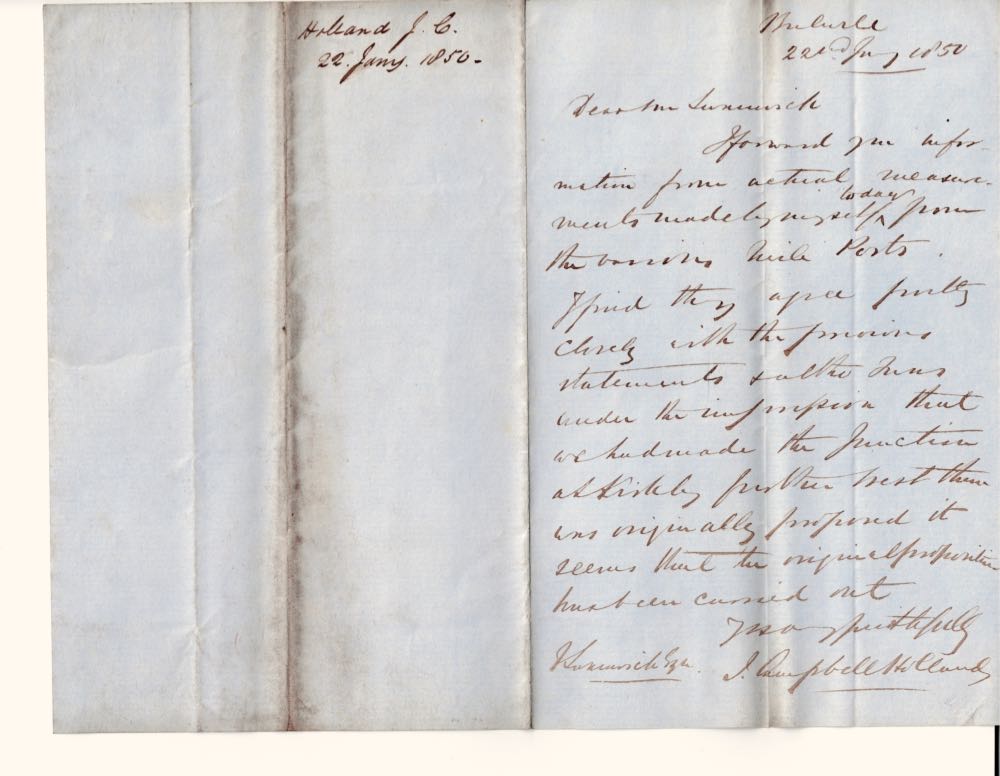 Holland J. C.
22. Jany. 1850 -
22nd Jany 1850
Dear Mr
I forward you infor-
mation from actual measure-
ments made by myself today from
the various Mile Posts.
I find they agree pretty
closely with the previous
statements & altho I was
under the impression that
we had made the Junction
at Kirkby further West than
was originally proposed it
seems that the original proposition
has been carried out
Yours faithfully
Esqre. J. Campbell Holland